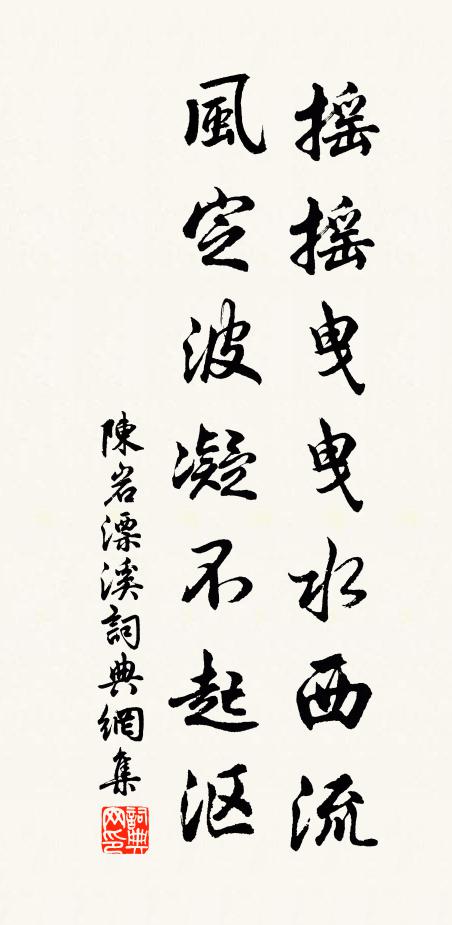 摇摇曳曳水西流
風定波凝不起沤
陳岩漂溪詞典網集
詞典网印